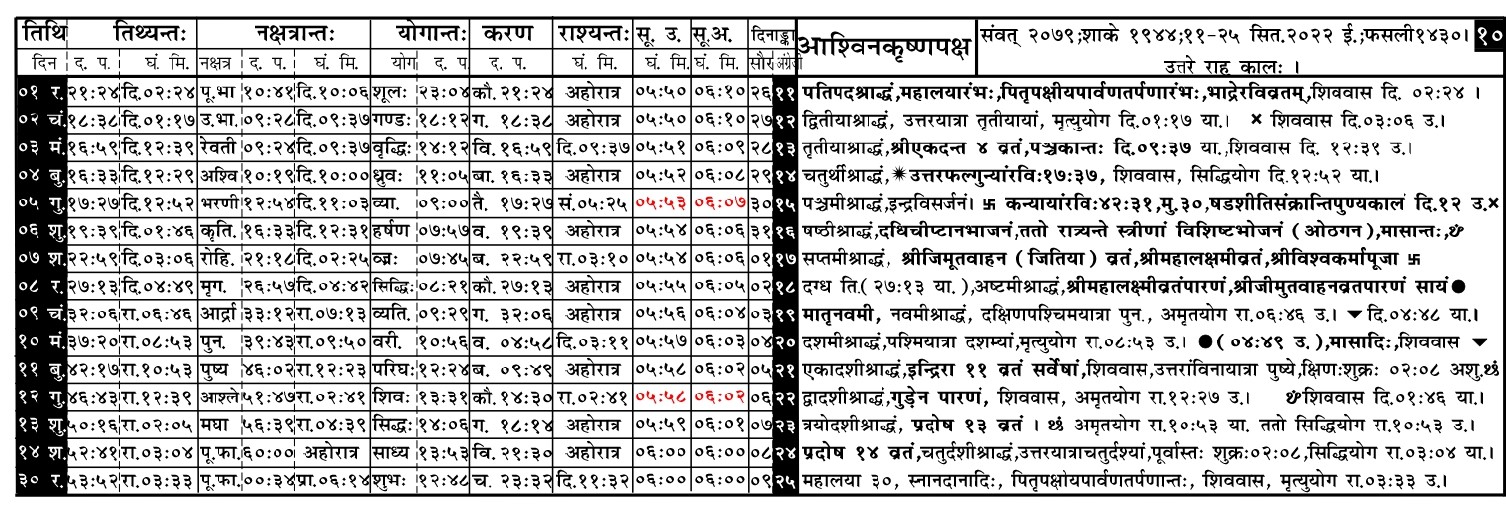 तिथि तिथ्यन्तः नक्षत्रान्तः योगान्तः करण राश्यन्तः सू. उ. सू.अ. दिनाङ्का आश्विनकृष्णपक्ष संवत् २०७९;शाके १९४४;११-२५ सित.२०२२ ई.;फसली१४३०। १०
दिन द. प. घं. मि. नक्षत्र द. प. घं. मि. योग द. प द. प. घं. मि. घं. मि. घं. मि. सौर अंग्रेजी उत्तरे राहु कालः ।
०१ र. २१:२४ दि.०२:२४ पू.भा १०:४१ दि.१०:०६ शूलः २३:०४ कौ.२१:२४ अहोरात्र ०५:५० ०६:१० २६ ११ पतिपदश्राद्धं,महालयारंभः,पितृपक्षीयपार्वणतर्पणारंभः,भाद्रेरविव्रतम्,शिववास दि. ०२:२४ ।
०२ चं. १८:३८ दि.०१:१७ उ.भा. ०९:२८ दि.०९:३७ गण्डः १८:१२ ग. १८:३८ अहोरात्र ०५:५० ०६:१० २७ १२ द्वितीयाश्राद्धं, उत्तरयात्रा तृतीयायां, मृत्युयोग दि.०१:१७ या.। × शिववास दि.०३:०६ उ.।
०३ मं. १६:५९ दि.१२:३९ रेवती ०९:२४ दि.०९:३७ वृद्धिः १४:१२ वि.१६:५९ दि.०९:३७ ०५:५१ ०६:०९ २८ १३ तृतीयाश्राद्धं,श्रीएकदन्त ४ व्रतं,पञ्चकान्तः दि.०९:३७ या.,शिववास दि. १२:३९ उ.।
०४ बु. १६:३३ दि.१२:२९ अश्वि १०:१९ दि.१०:०० ध्रुवः ११:०५ बा.१६:३३ अहोरात्र ०५:५२ ०६:०८ २९ १४ चतुर्थीश्राद्धं,✷उत्तरफल्गुन्यांरविः१७:३७, शिववास, सिद्धियोग दि.१२:५२ या.।
०५ गु. १७:२७ दि.१२:५२ भरणी १२:५४ दि.११:०३ व्या. ०९:०० तै. १७:२७ सं.०५:२५ ०५:५३ ०६:०७ ३० १५ पञ्चमीश्राद्धं,इन्द्रविसर्जनं। 卐 कन्यायांरविः४२:३१,मु.३०,षडशीतिसंक्रान्तिपुण्यकालं दि.१२ उ.×
०६ शु. १९:३९ दि.०१:४६ कृति. १६:३३ दि.१२:३१ हर्षण ०७:५७ व. १९:३९ अहोरात्र ०५:५४ ०६:०६ ३१ १६ षष्ठीश्राद्धं,दधिचीप्टानभाजनं,ततो रात्र्यन्ते स्त्रीणां विशिष्टभोजनं (ओठगन),मासान्तः,
०७ श. २२:५९ दि.०३:०६ रोहि. २१:१८ दि.०२:२५ व्ज्रः ०७:४५ ब. २२:५९ रा.०३:१० ०५:५४ ०६:०६ ०१ १७ सप्तमीश्राद्धं, श्रीजिमूतवाहन (जितिया) व्रतं,श्रीमहालक्षमीव्रतं,श्रीविश्वकर्मापूजा 卐
०८ र. २७:१३ दि.०४:४९ मृग. २६:५७ दि.०४:४२ सिद्धिः ०८:२१ कौ.२७:१३ अहोरात्र ०५:५५ ०६:०५ ०२ १८ दग्ध ति.(२७:१३ या.),अष्टमीश्राद्धं,श्रीमहालक्ष्मीव्रतंपारणं,श्रीजीमुतवाहनव्रतपारणं सायं●
०९ चं. ३२:०६ रा.०६:४६ आर्द्रा ३३:१२ रा.०७:१३ व्यति. ०९:२९ ग. ३२:०६ अहोरात्र ०५:५६ ०६:०४ ०३ १९ मातृनवमी, नवमीश्राद्धं, दक्षिणपश्चिमयात्रा पुन., अमृतयोग रा.०६:४६ उ.। ▾दि.०४:४८ या.।
१० मं. ३७:२० रा.०८:५३ पुन. ३९:४३ रा.०९:५० वरी. १०:५६ व. ०४:५८ दि.०३:११ ०५:५७ ०६:०३ ०४ २० दशमीश्राद्धं,पश्मियात्रा दशम्यां,मृत्युयोग रा.०८:५३ उ.। ●(०४:४९ उ.),मासादिः,शिववास ▾
११ बु. ४२:१७ रा.१०:५३ पुष्य ४६:०२ रा.१२:२३ परिघः १२:२४ ब. ०९:४९ अहोरात्र ०५:५८ ०६:०२ ०५ २१ एकादशीश्राद्धं,इन्द्रिरा ११ व्रतं सर्वेषां,शिववास,उत्तरांविनायात्रा पुष्ये,क्षिणःशुक्रः ०२:०८ अशु.
१२ गु. ४६:४३ रा.१२:३९ आश्ले ५१:४७ रा.०२:४१ शिवः १३:३१ कौ.१४:३० रा.०२:४१ ०५:५८ ०६:०२ ०६ २२ द्वादशीश्राद्धं,गुड़ेन पारणं, शिववास, अमृतयोग रा.१२:२७ उ.। शिववास दि.०१:४६ या.।
१३ शु. ५०:१६ रा.०२:०५ मघा ५६:३९ रा.०४:३९ सिद्धः १४:०६ ग. १८:१४ अहोरात्र ०५:५९ ०६:०१ ०७ २३ त्रयोदशीश्राद्धं, प्रदोष १३ व्रतं । अमृतयोग रा.१०:५३ या. ततो सिद्धियोग रा.१०:५३ उ.।
१४ श. ५२:४१ रा.०३:०४ पू.फा. ६०:०० अहोरात्र साध्य १३:५३ वि.२१:३० अहोरात्र ०६:०० ०६:०० ०८ २४ प्रदोष १४ व्रतं,चतुर्दशीश्राद्धं,उत्तरयात्राचतुर्दश्यां,पूर्वास्तः शुक्रः०२:०८,सिद्धियोग रा.०३:०४ या.।
३० र. ५३:५२ रा.०३:३३ पू.फा. ००:३४ प्रा.०६:१४ शुभः १२:४८ च. २३:३२ दि.११:३२ ०६:०० ०६:०० ०९ २५ महालया ३०, स्नानदानादिः, पितृपक्षोयपार्वणतर्पणान्तः, शिववास, मृत्युयोग रा.०३:३३ उ.।